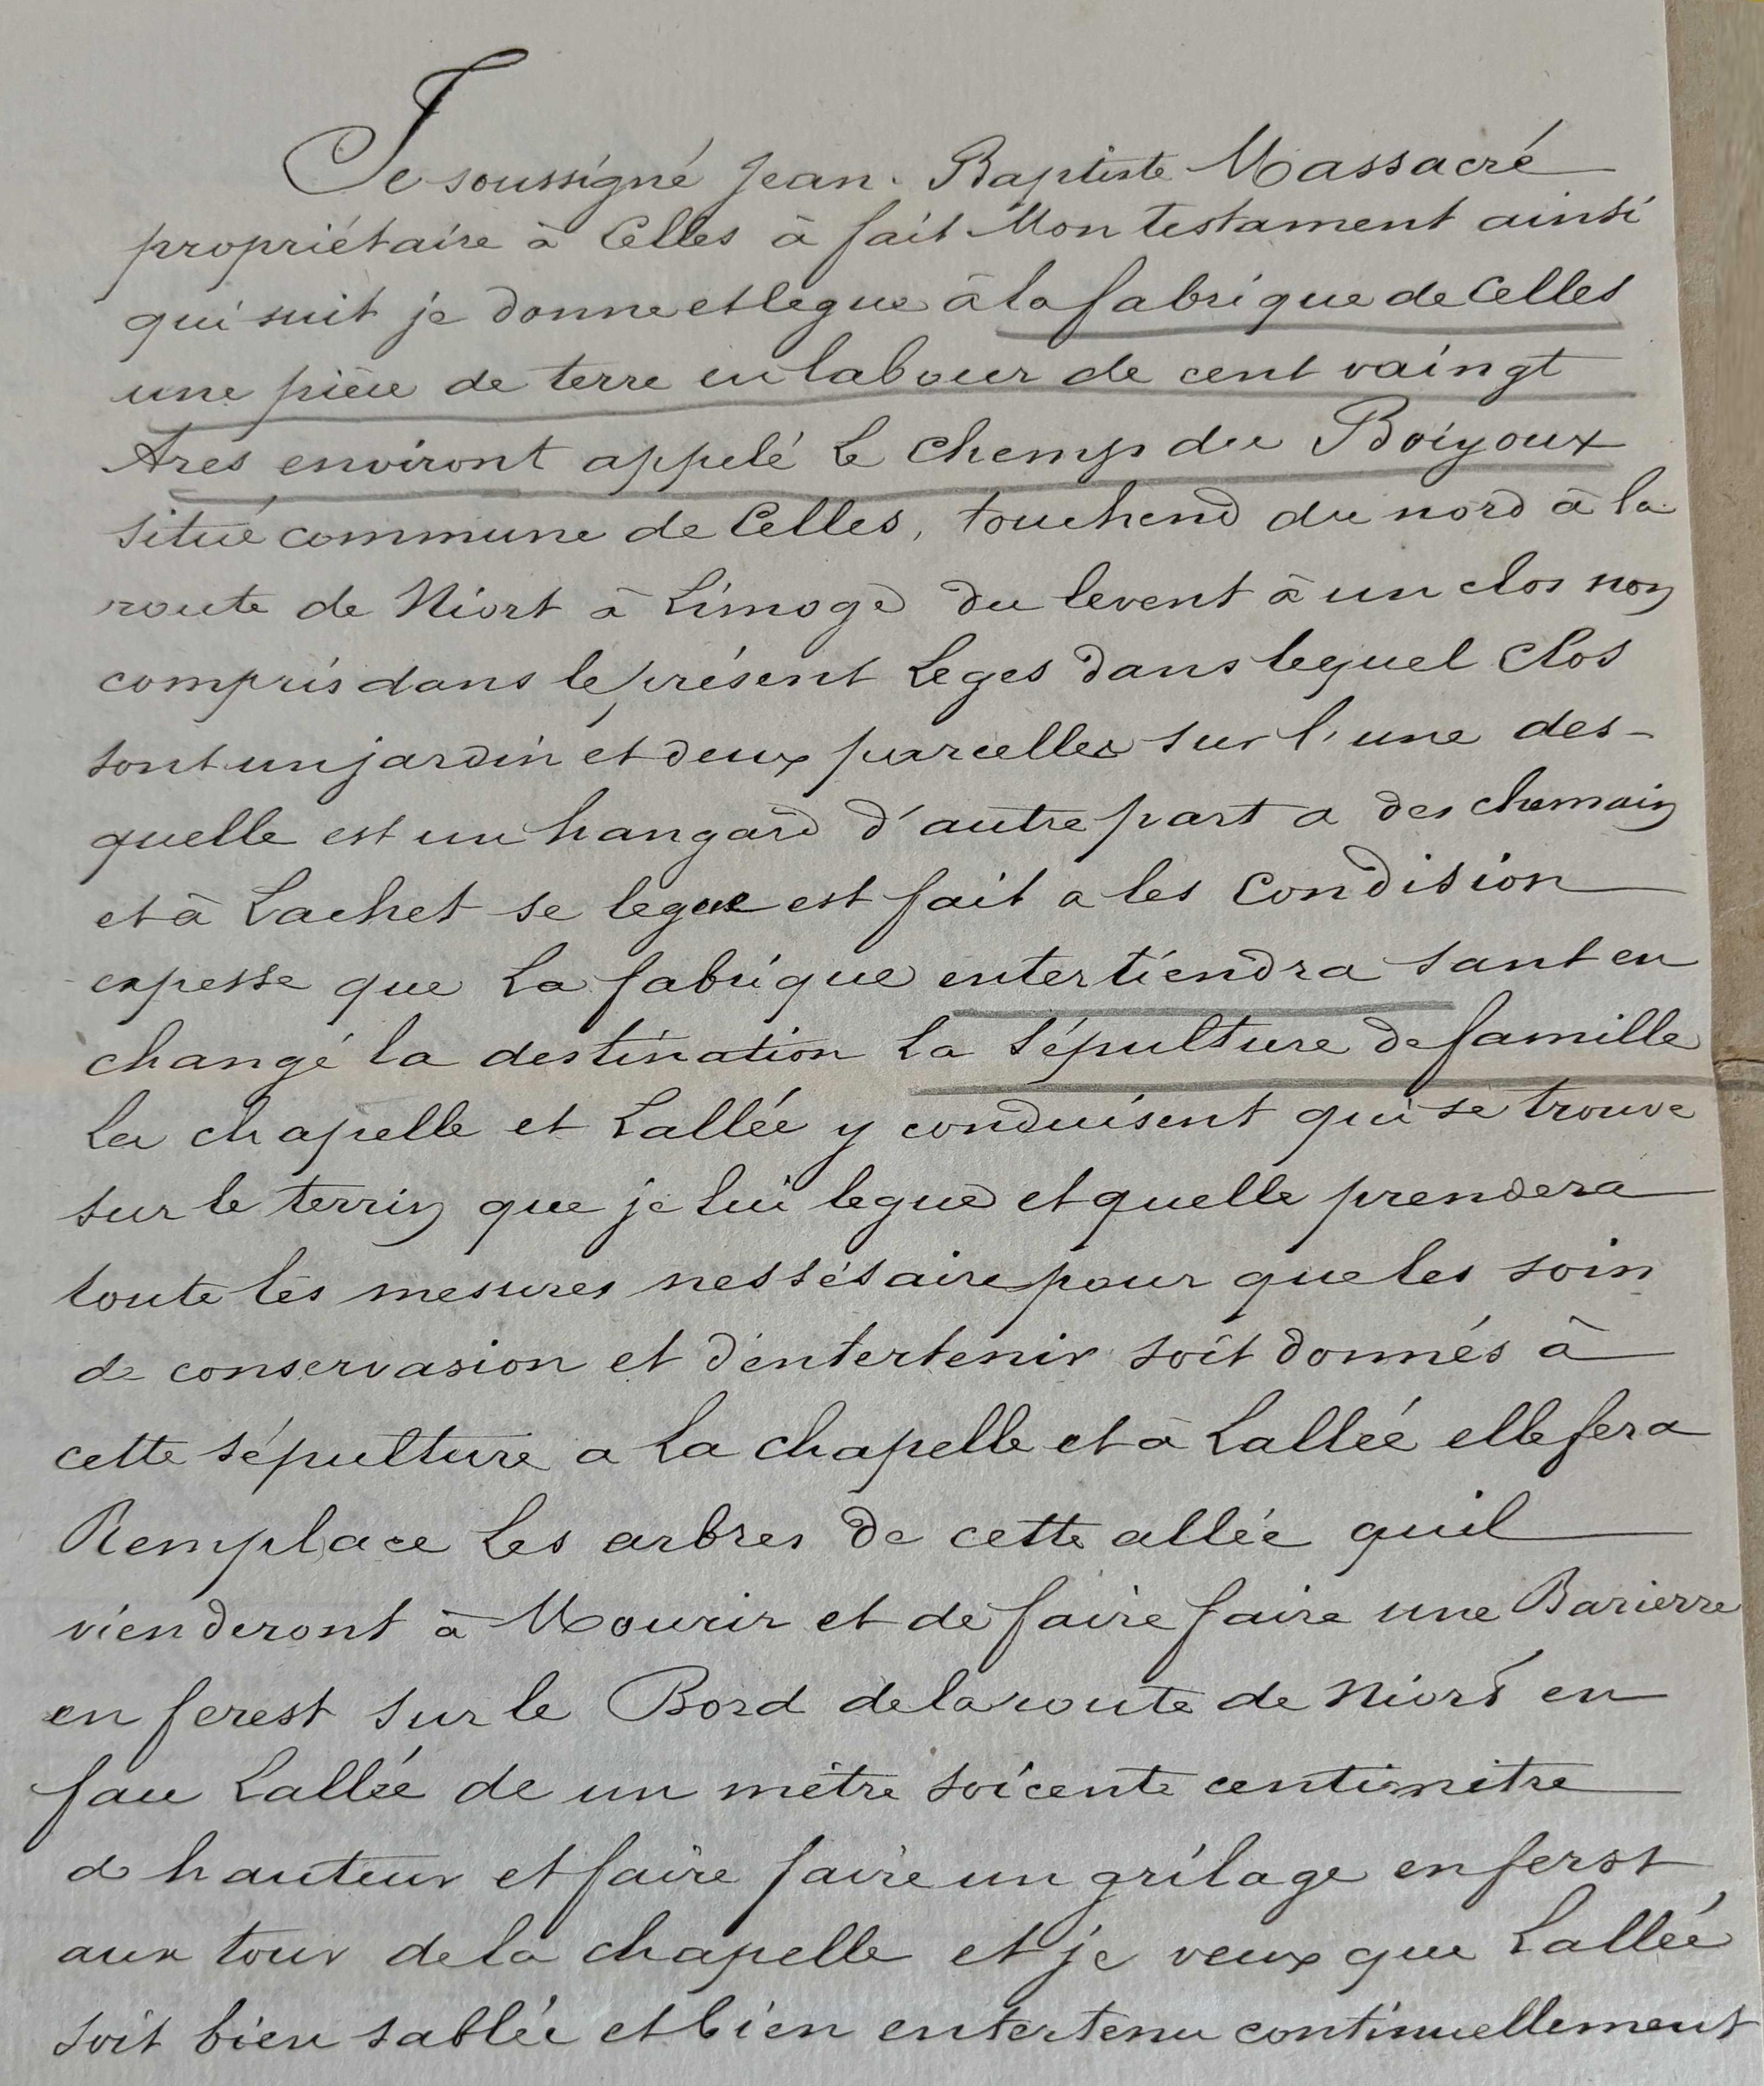 Je soussigné Jean-Baptiste Massacré
propriétaire à Celles à fait Mon testament ainsi
qui suit je donne et legue à la fabrique de Celles
une pièce de terre en labour de cent vaingt
Ares environt appelé le Chemp du Boiyoux
situé commune de Celles, touchend du nord à la
route de Niort à Limoge du levent à un clos non
compris dans le présent Leges dans lequel Clos
sont un jardin et deux parcelles sur l'une des-
quelle est un hangard d'autre part a des chemain
et à Lachet se legue est fait a les Condision
expesse que La fabrique entertiendra sant en
changé la destination La sépulture de famille
La chapelle et Lallée y conduisent qui se trouve
sur le terrin que je lui legue et quelle prendera
toute les mesures nessésaire pour que les soin
de conservasion et d'entertenir soit donnés à
cette sépulture a La chapelle et à Lallée elle fera
Remplace Les arbres de cette allée quil
vienderont à Mourir et de faire faire une Barierre
en ferest sur le Bord de la route de Niort en
fau Lallée de un mètre soicente centimètre
d hauteur et faire faire un grilage en ferst
aux tour de la chapelle et je veux que Lallée
soit bien sablée et bien entertenu continuellement